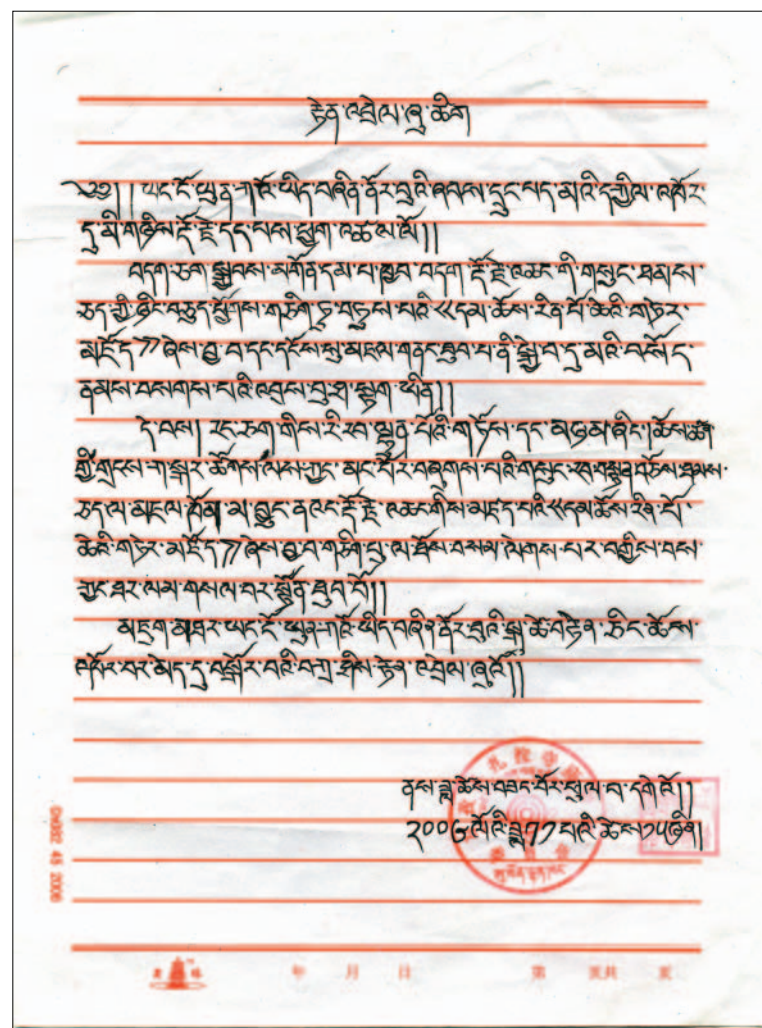 རྟེན་འབྲེལ་ཞུ་ཚིག
༄༅།། ཡང་ངོ་ཡུན་ཀཽ་ཡིད་བཞིན་ནོར་བུའི་ཞབས་དྲུང་པད་མའི་དཀྱིལ་འཁོར
དུ་མི་གཉིས་རྡོ་རྗེ་དད་པས་ཕྱག་འཚལ་ལོ།།
བདག་ཅག་སྐྱབས་མགོན་དམ་པ་ཁྱབ་བདག་རྡོ་རྗེ་འཆང་གི་གསུང་ཐམས་
ཅད་ཀྱི་ཉིང་བཅུད་ཕྱོགས་གཅིག་ཏུ་བཏུས་པའི་《དམ་ཆོས་རིན་པོ་ཆེའི་གཏེར་
མཛོད》ཞེས་བྱ་བ་དང་དངོས་སུ་མཇལ་གནང་ཐུབ་པ་ནི་སྐྱེ་བ་དུ་མའི་བསོད་
ནམས་བསགས་པའི་འབྲས་བུ་ཁྱ་སྟག་ཡིན།།
དེ་བས། རང་ཅག་གིས་རི་རབ་ལྷུན་པོའི་གཏོས་དང་མཉམ་ཞིང་།ཆོས་ཚན་
གྱི་གྲངས་ཀ་སྐར་ཚོགས་ལས་ཀྱང་མང་པོར་བཞུགས་པའི་གསུང་རབ་གསུན་བཅོས་ཐམས་
ཅད་ལ་མཇལ་ཁོམ་མ་བྱུང་ནའང་རྡོ་རྗེ་འཆང་གིས་མཛད་པའི《དམ་ཆོས་རིན་པོ་
ཆེའི་གཏེར་མཛོད》ཞེས་བྱ་བ་གཅིག་པུ་ལ་ཐོས་བསམ་ལེགས་པར་བགྱིས་བས་
ཀྱང་ཐར་ལམ་གསལ་བར་སྟོན་ཐུབ་བོ།།
མཇུག་མཐར་ཡང་ངོ་ཡུན་ཀཽ་ཡིད་བཞིན་ནོར་བུའི་སྐུ་ཚེ་བརྟེན་ཅིང་ཆོས་
འཁོར་བར་མེད་དུ་བསྐོར་བའི་བཀྲ་ཤིས་རྟེན་འབྲེལ་ཞུའོ།།
ནས་ཟླ་ཚེས་བཟང་པོར་ཕུལ་བ་དགེའོ།།
༢༠༠༦ལོའི་ཟླ༡༡པའི་ཚེས༡༥ཉིན།
0x032 45 2006
年 月 日 第 页共 页